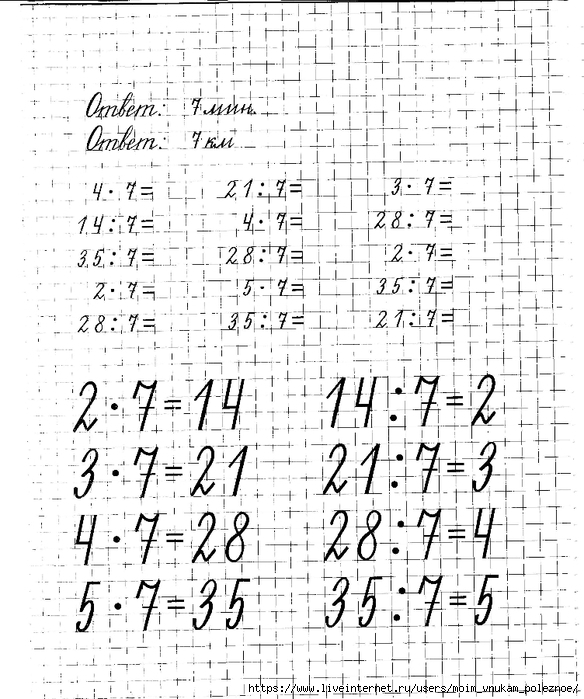 Ответ: 7 мин.
Ответ: 7 км
4· 7= 21: 7= 3· 7=
14: 7= 4· 7= 28: 7=
35: 7= 28: 7= 2· 7=
2· 7= 5· 7= 35: 7=
28: 7= 35: 7= 21: 7=
2·7=14 14:7=2
3·7=21 21:7=3
4·7=28 28:7=4
5·7=35 35:7=5
https://www.liveinternet.ru/users/moim_vnukam_poleznoe/